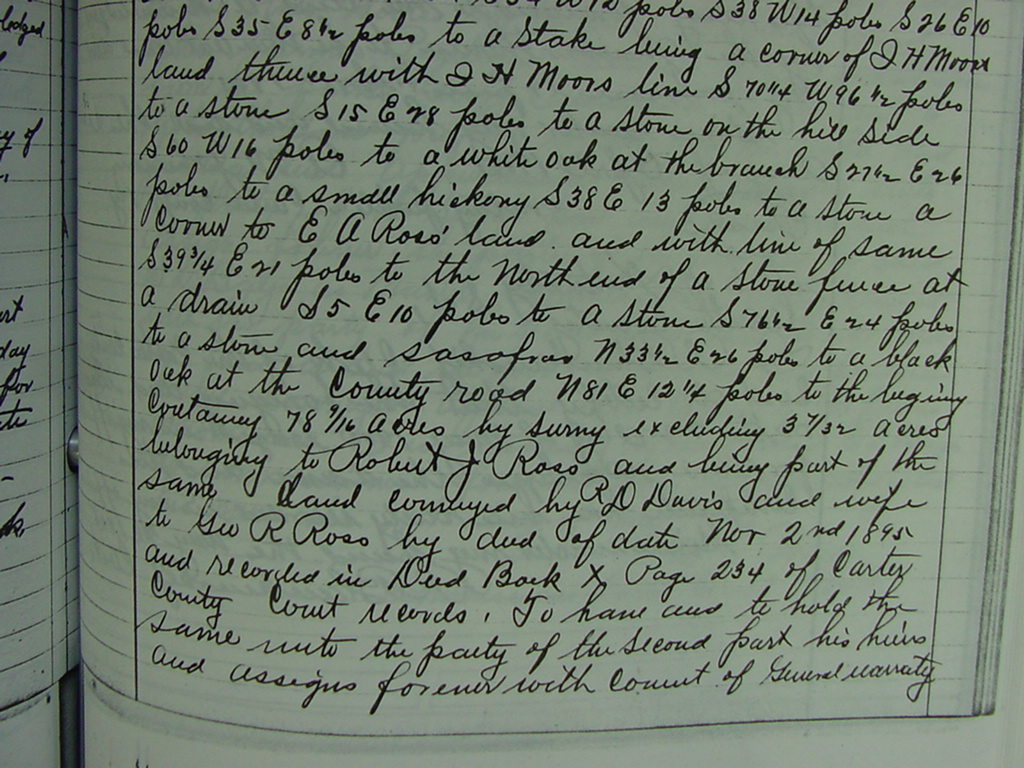 W12 poles S38 W14 poles S26 E10
poles S35 E8½ poles to a Stake being a corner of J H Moors
land thence with J H Moors line S 70¼ W96½ poles
to a stone S15 E28 poles to a stone on the hill side
S60 W16 poles to a white oak at the branch S27½ E26
poles to a small hickory S38 E 13 poles to a stone a
corner to E A Ross' land and with line of same
S39¾ E21 poles to the North end of a stone fence at
a drain S5 E10 poles to a stone S76½ E24 poles
to a stone and sasafras N33½ E26 poles to a black
oak at the County road N81 E 12¼ poles to the beginy
Contaning 78 9/16 acres by survy excluding 3 7/32 acres
belonging to Robert J Ross and being part of the
same land conveyed by R D Davis and wife
to Geo R Ross by deed of date Nov 2nd 1895
and recorded in Deed Book X Page 234 of Carter
County Court records. To have and to hold the
same unto the party of the second part his heirs
and assigns forever with Covnt of General warraty
lodged
y of
day
for